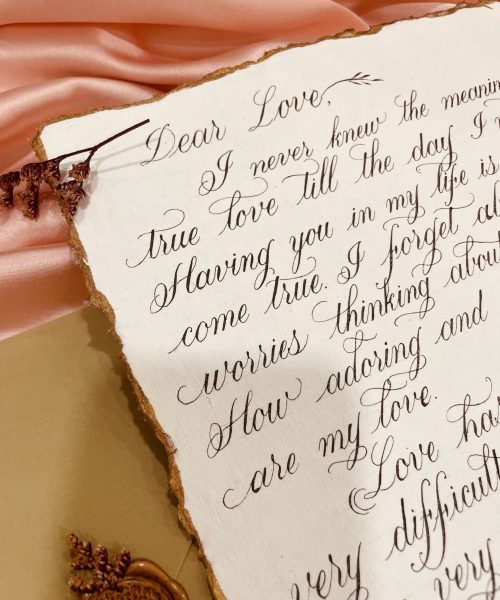 Dear Love,
I never knew the meaning
true love till the day I
Having you in my life is
come true. I forget
worries thinking about
How adoring and
are my love.
Love has
very difficult
very